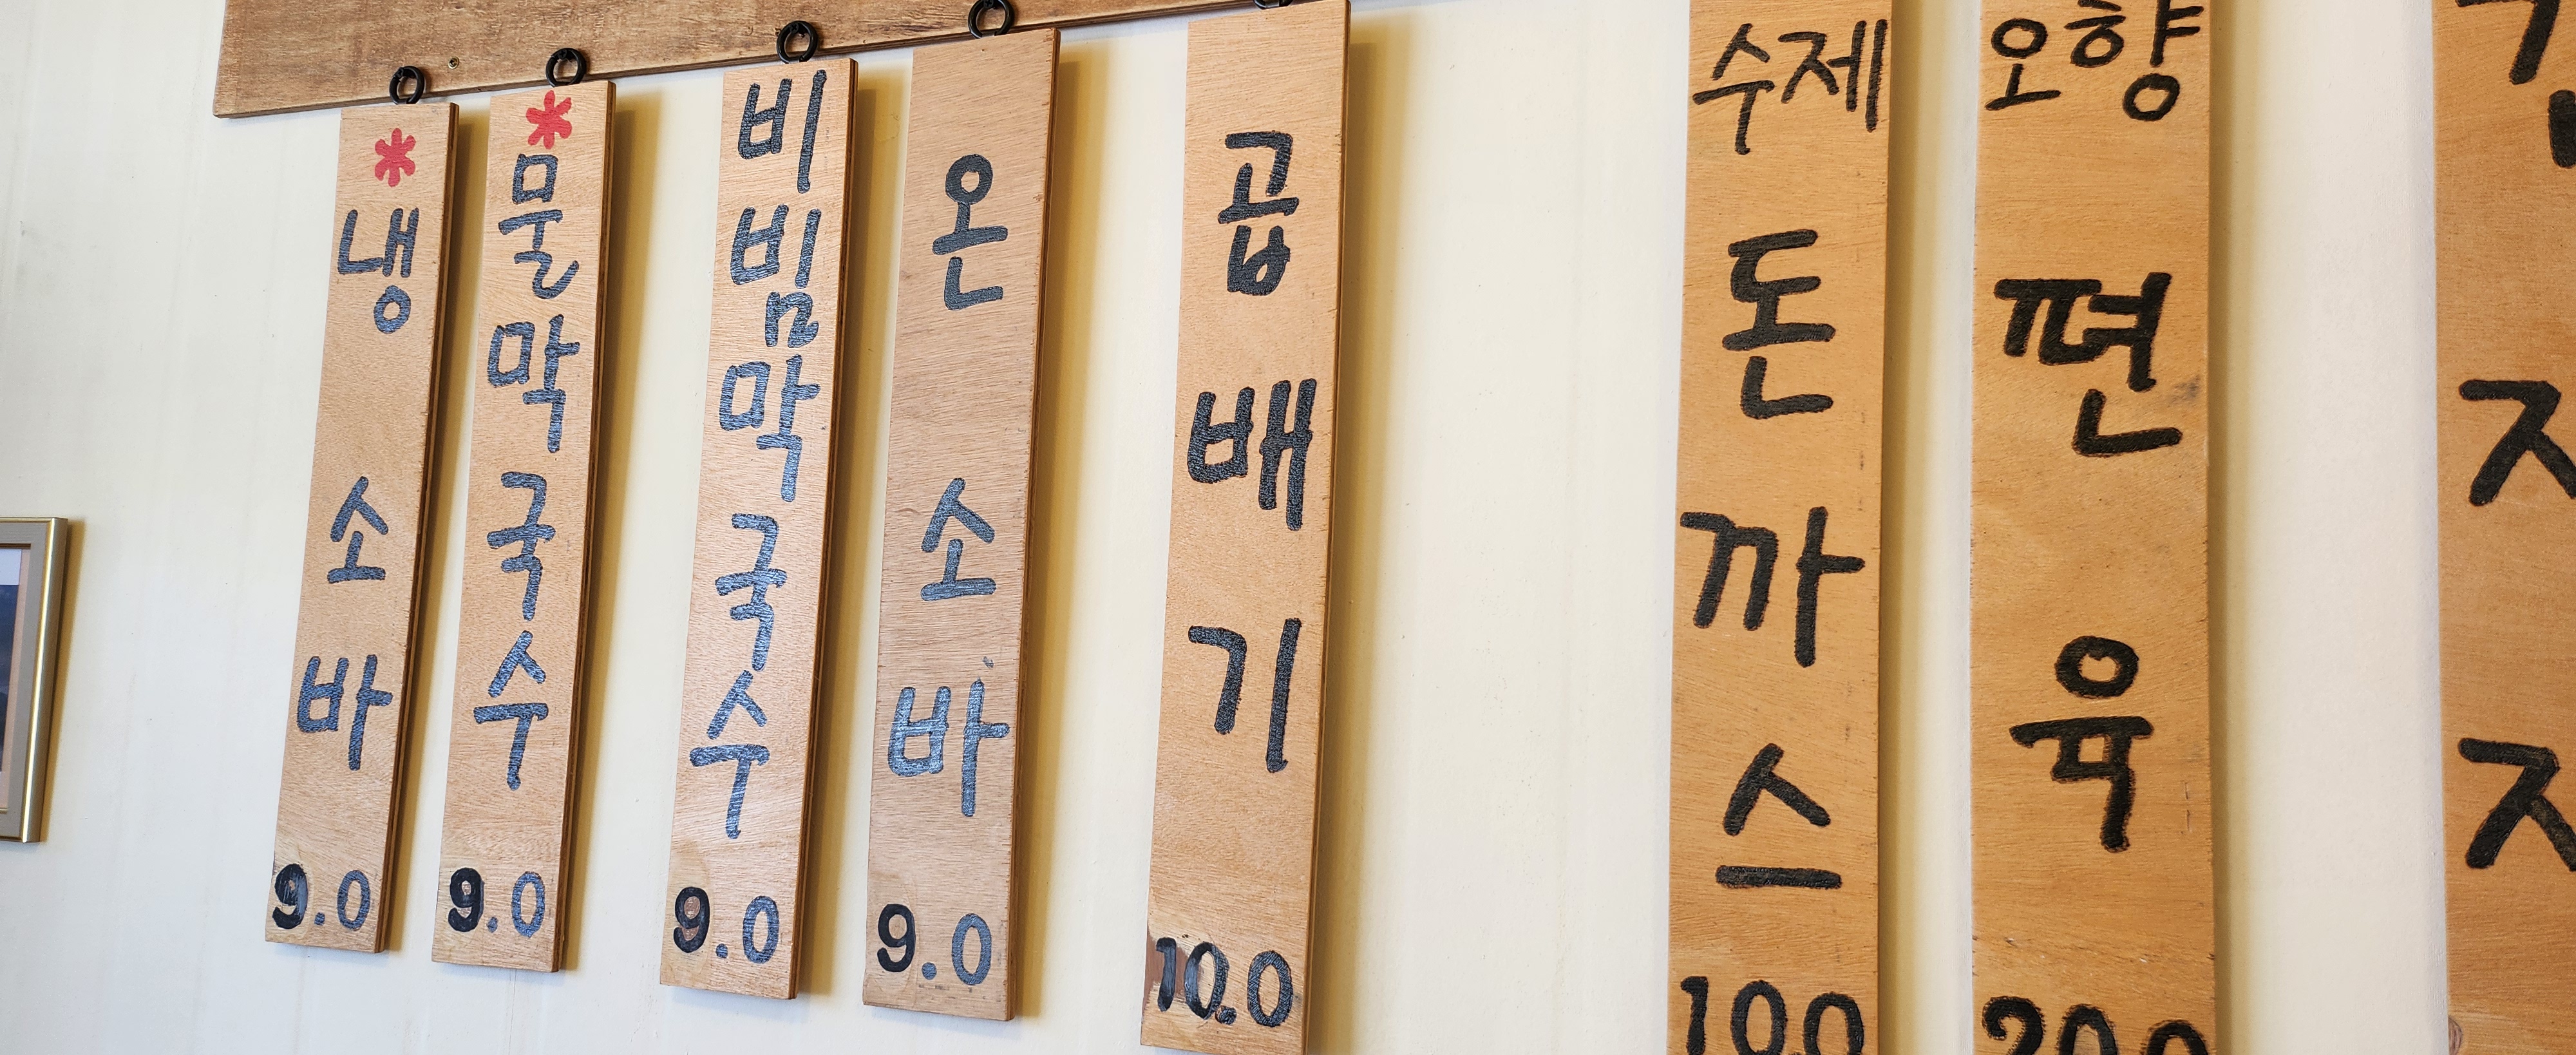 *냉 소바 9.0
*물막국수 9.0
비빔막국수 9.0
온 소바 9.0
곱배기 10.0
수제 돈까스 10.0
오향 편육 20.0